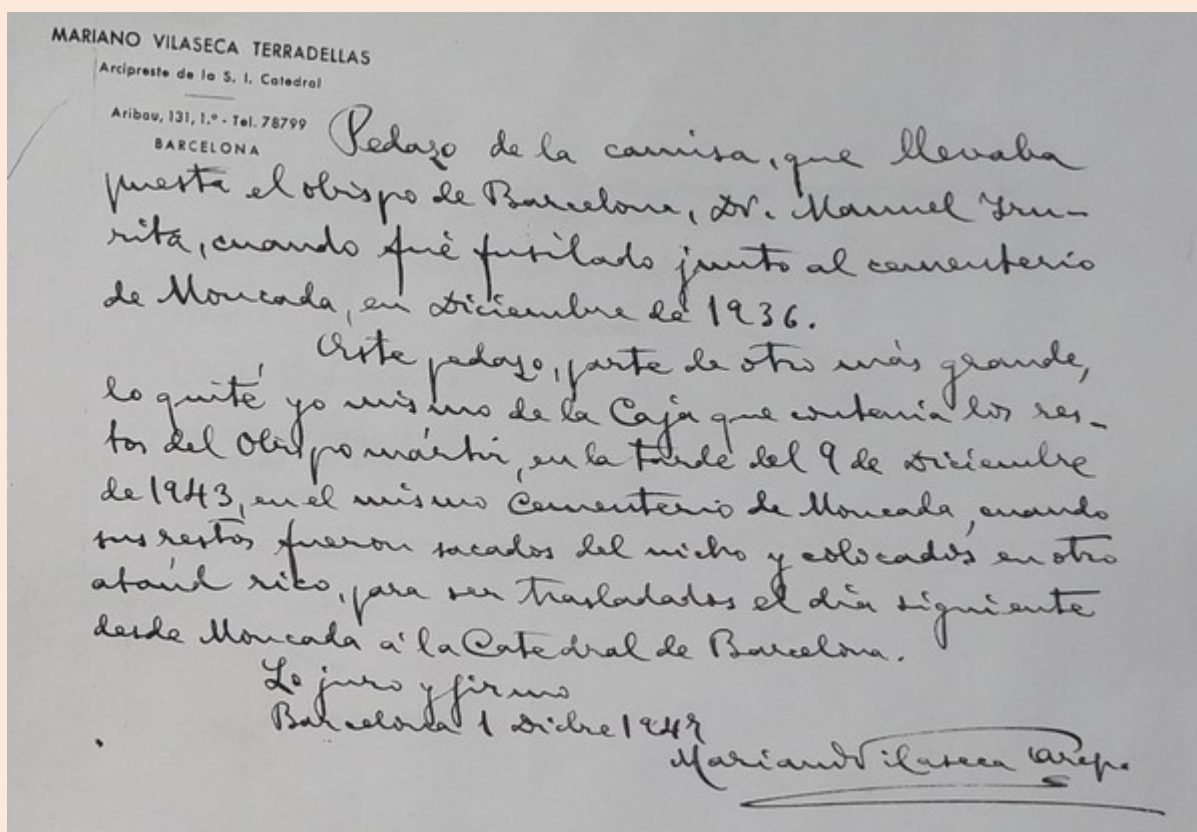 MARIANO VILASECA TERRADELLAS
Arcipreste de la S. I. Catedral
Aribau, 131, 1.º - Tel. 78799
BARCELONA
Pedazo de la camisa, que llevaba
puesta el obispo de Barcelona, Dr. Manuel Iru-
rita, cuando fué fusilado junto al cementerio
de Moncada, en Diciembre de 1936.
Este pedazo, parte de otro más grande,
lo quité yo mismo de la Caja que contenía los res-
tos del Obispo mártir, en la tarde del 9 de Diciembre
de 1943, en el mismo Cementerio de Moncada, cuando
sus restos fueron sacados del nicho y colocados en otro
ataúd rico, para ser trasladados el día siguiente
desde Moncada á la Catedral de Barcelona.
Lo juro y firmo
Barcelona 1 Dicbre
Mariano Vilaseca